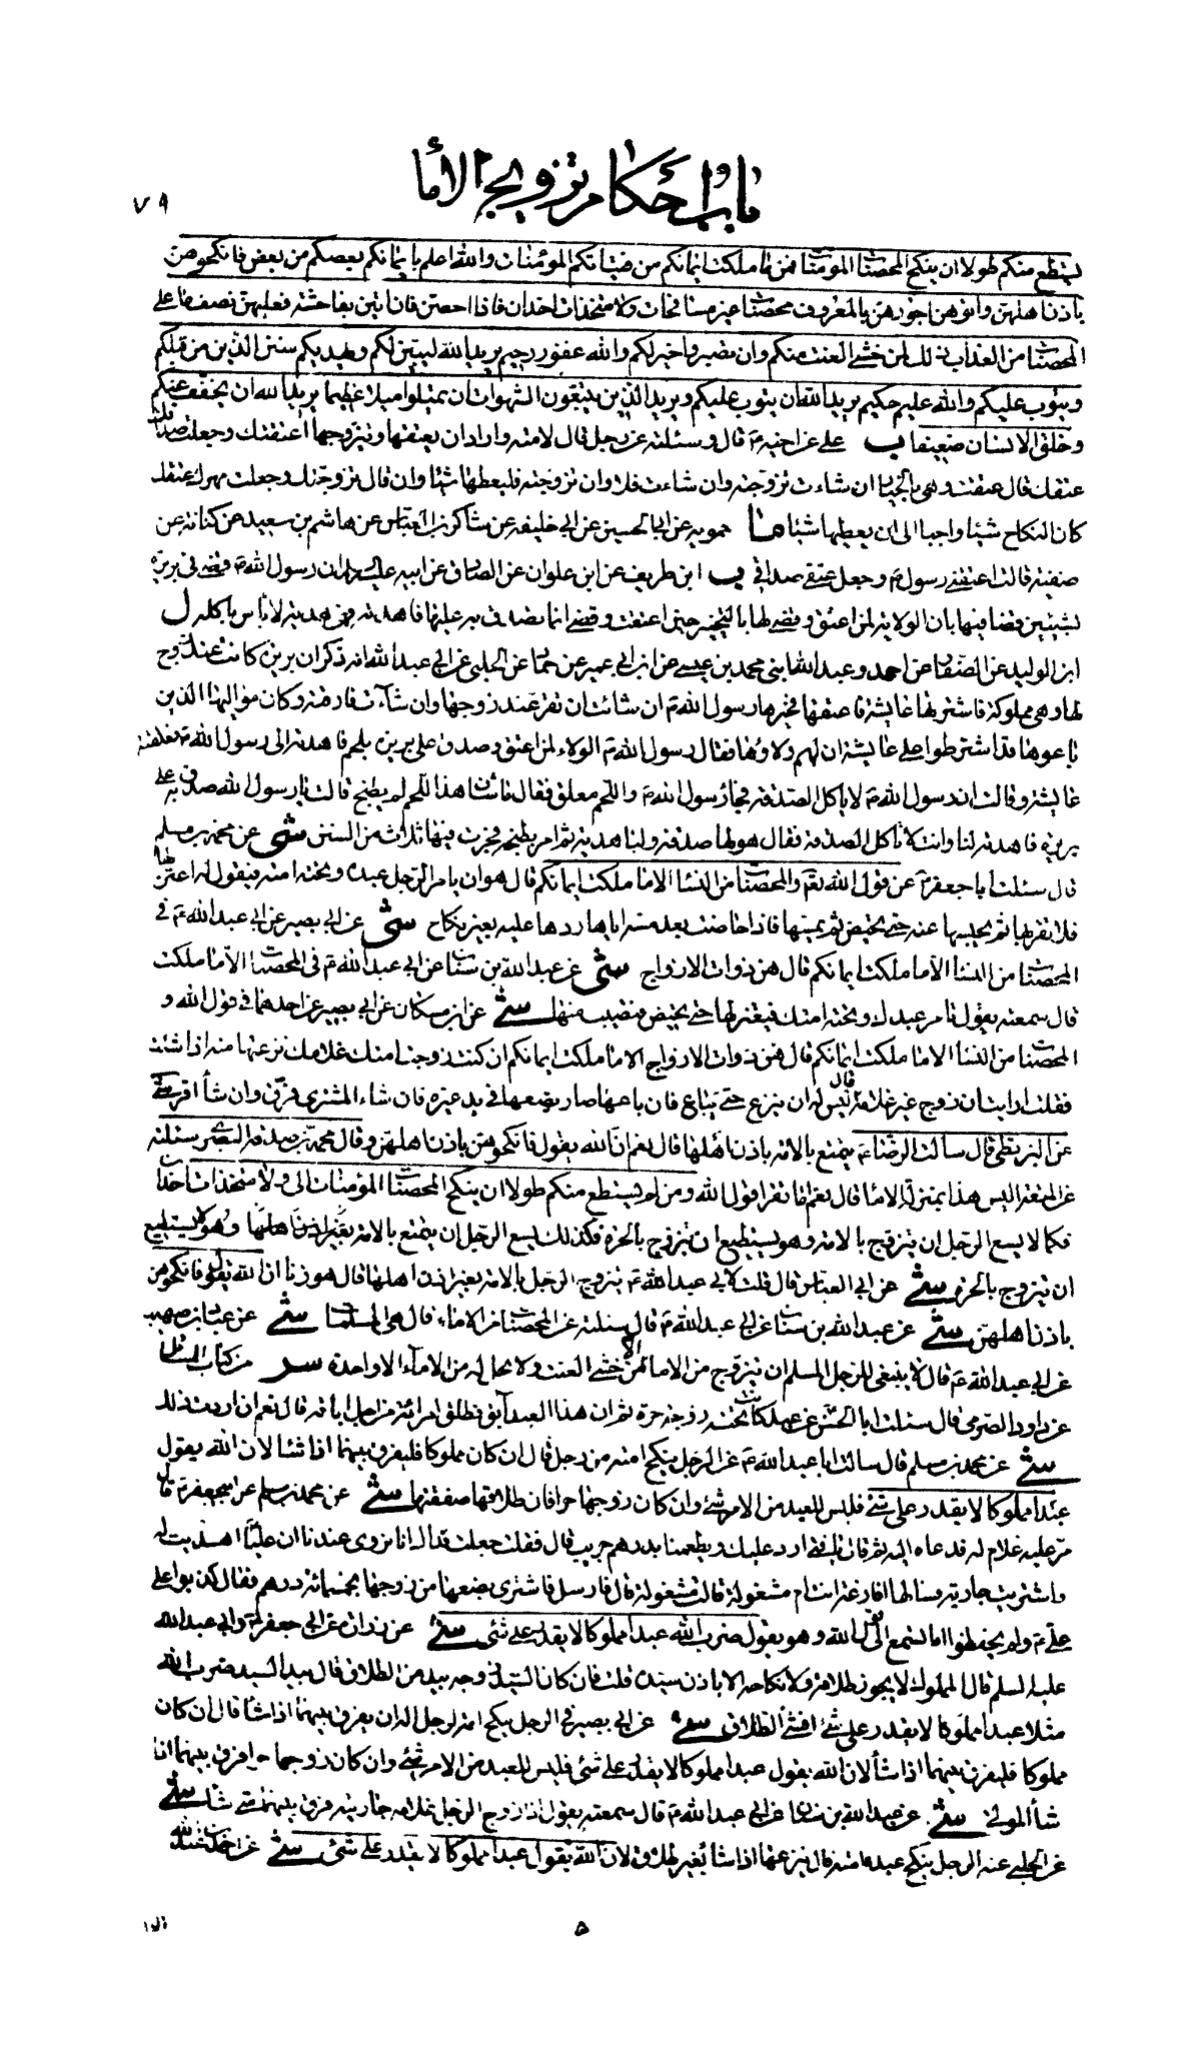 باب احكام تزويج الأما
٧٩
يستطع منكم طولا ان ينكح المحصنات المؤمنات فمن ما ملكت ايمانكم من فتياتكم المؤمنات والله اعلم بايمانكم بعضكم من بعض فانكحوهن
باذن اهلهن واتوهن اجورهن بالمعروف محصنات غير مسافحات ولا متخذات اخدان فاذا احصن فان اتين بفاحشة فعليهن نصف ما على
المحصنات من العذاب ذلك لمن خشي العنت منكم وان تصبروا خير لكم والله غفور رحيم يريد الله ليبين لكم ويهديكم سنن الذين من قبلكم
ويتوب عليكم والله عليم حكيم يريد الله ان يتوب عليكم ويريد الذين يتبعون الشهوات ان تميلوا ميلا عظيما يريد الله ان يخفف عنكم
وخلق الانسان ضعيفا ب علي عن اخيه ع قال وسئلته عن رجل قال لامته واراد ان يعتقها ويتزوجها اعتقتك وجعلت صداقك
عتقك قال عتقت وهي بالخيار ان شاءت تزوجته وان شاءت فلا وان تزوجته فليعطها شيئا وان قال تزوجتك وجعلت مهرك عتقك
كان النكاح شيئا واجبا الى ان يعطيها شيئا ما حمويه عن ابي الحسين عن ابي خليفة عن شاكر بن العباس عن هاشم بن سعيد عن كنانة عن
صفية قالت اعتقني رسول ص وجعل عتقي صداقي ب ابن طريف عن ابن علوان عن الصادق عن ابيه عليه السلام ان رسول الله ص قضى في بريرة
بشيئين قضا فيها بان الولاية لمن اعتق وقضى لها بالتخيير حين اعتقت وقضى انما تصدق به عليها فاهدته فهي هدية لا بأس باكله ل
ابن الوليد عن الصفار عن احمد وعبد الله ابني محمد بن عيسى عن ابن ابي عمير عن حماد عن الحلبي عن ابي عبد الله انه ذكر ان بريرة كانت عند زوج
لها وهي مملوكة فاشترتها عايشة فاعتقتها فخيرها رسول الله ص ان شائت ان تقر عند زوجها وان شاءت فارقته وكان مواليها الذين
باعوها قد اشترطوا على عايشة ان لهم ولاؤها فقال رسول الله ص الولاء لمن اعتق وصدق على بريرة بلحم فاهدته الى رسول الله ص فعلقته
عايشة وقالت ان رسول الله ص لا ياكل الصدقة فجاء رسول الله ص واللحم معلق فقال ما شان هذا اللحم لم يطبخ قالت يا رسول الله صدق به على
بريرة فاهدته لنا وانت لا تاكل الصدقة فقال هو لها صدقة ولنا هدية ثم امر بطبخه فجرت فيها ثلاث من السنن شى عن محمد بن مسلم
قال سئلت ابا جعفر ع عن قول الله تع والمحصنات من النسا الا ما ملكت ايمانكم قال هو ان يامر الرجل عبده وتحته امته فيقول له اعتزلها
فلا تقربها ثم يحبسها عنه حتى تحيض ثم يمسها فاذا حاضت بعد مسه اياها ردها عليه بغير نكاح شى عن ابي بصير عن ابي عبد الله ع في
المحصنات من النسا الا ما ملكت ايمانكم قال هن ذوات الازواج شى عن عبد الله بن سنان عن ابي عبد الله ع في المحصنات الا ما ملكت
قال سمعته يقول تامر عبدك وتحته امتك فيعتزلها حتى تحيض فتصيب منها شى عن ابن مسكان عن ابي بصير عن احدهما في قول الله و
المحصنات من النسا الا ما ملكت ايمانكم قال هن ذوات الازواج الا ما ملكت ايمانكم ان كنت زوجت امتك غلامك نزعتها منه اذا شئت
فقلت ارايت ان زوج غير غلامه قال ليس له ان ينزع حتى تباع فان باعها صار بضعها في يد غيره فان شاء المشتري فرق وان شأ اقر شى
عن البزنطي قال سالت الرضا ع يتمتع بالامة باذن اهلها قال نعم ان الله يقول فانكحوهن باذن اهلهن وقال محمد بن صدقة البصري سئلته
عن المتعة اليس هذا بمنزلة الاما قال نعم اما تقرا قول الله ومن لم يستطع منكم طولا ان ينكح المحصنات المؤمنات الى ولا متخذات اخدان
فكما لا يسع الرجل ان يتزوج بالامة وهو يستطيع ان يتزوج بالحرة فكذلك يسع الرجل ان يتمتع بالامة بغير اذن اهلها وهو يستطيع
ان يتزوج بالحرة شى عن ابي العباس قال قلت لابي عبد الله ع يتزوج الرجل بالامة بغير اذن اهلها قال هو زنا ان الله يقول فانكحوهن
باذن اهلهن شى عن عبد الله بن سنان عن ابي عبد الله ع قال سئلته عن المحصنات من الاماء قال هي المسلمات شى عن عباد بن صهيب
عن ابي عبد الله ع قال لا ينبغي للرجل المسلم ان يتزوج من الاما الا من خشي العنت ولا يحل له من الاماء الا واحدة سر من كتاب المسائل
عن داود الصرمي قال سئلت ابا الحسن عن عبد كانت تحته زوجة حرة ثم ان هذا العبد آبق فطلق امراته من اجل اباقه قال نعم ان اردت ذلك
شى عن محمد بن مسلم قال سالت ابا عبد الله ع عن الرجل ينكح امته من رجل قال ان كان مملوكا فليفرق بينهما اذا شئا لان الله يقول
عبدا مملوكا لا يقدر على شئ فليس للعبد من الامر شئ وان كان زوجها حرا فان طلاقها صفقتها شى عن محمد بن مسلم عن ابي جعفر ع قال
مر عليه غلام له فدعاه اليه ثم قال يا فتى ارد عليك ويطعمنا بدرهم خربز قال فقلت جعلت فداك انا نروي عندنا ان عليا اهديت له
واشتريت جارية وسالها افارغة انت ام مشغولة قالت مشغولة قال فارسل فاشترى بضعها من زوجها بخمسمائة درهم فقال كذبوا على
علي ع ولم يحفظوا اما تسمع الى قول الله وهو يقول ضرب الله عبدا مملوكا لا يقدر على شئ شى عن زرارة عن ابي جعفر ع وابي عبد الله
عليه السلم قال المملوك لا يجوز طلاقه ولا نكاحه الا باذن سيده قلت فان كان السيد زوجه بيد من الطلاق قال بيد السيد ضرب الله
مثلا عبدا مملوكا لا يقدر على شئ افشئ الطلاق شى عن ابي بصير في الرجل ينكح امته لرجل اله ان يفرق بينهما اذا شأ قال ان كان
مملوكا فليفرق بينهما اذا شأ لان الله يقول عبدا مملوكا لا يقدر على شئ فليس للعبد من الامر شئ وان كان زوجها حرا فرق بينهما اذا
شأ المولى شى عن عبد الله بن سنان عن ابي عبد الله ع قال سمعته يقول اذا زوج الرجل غلامه جاريته فرق بينهما متى شاء شى
عن الحلبي عنه الرجل ينكح عبده امته قال ينزعها اذا شأ بغير طلاق لان الله يقول عبدا مملوكا لا يقدر على شئ شى عن
٥